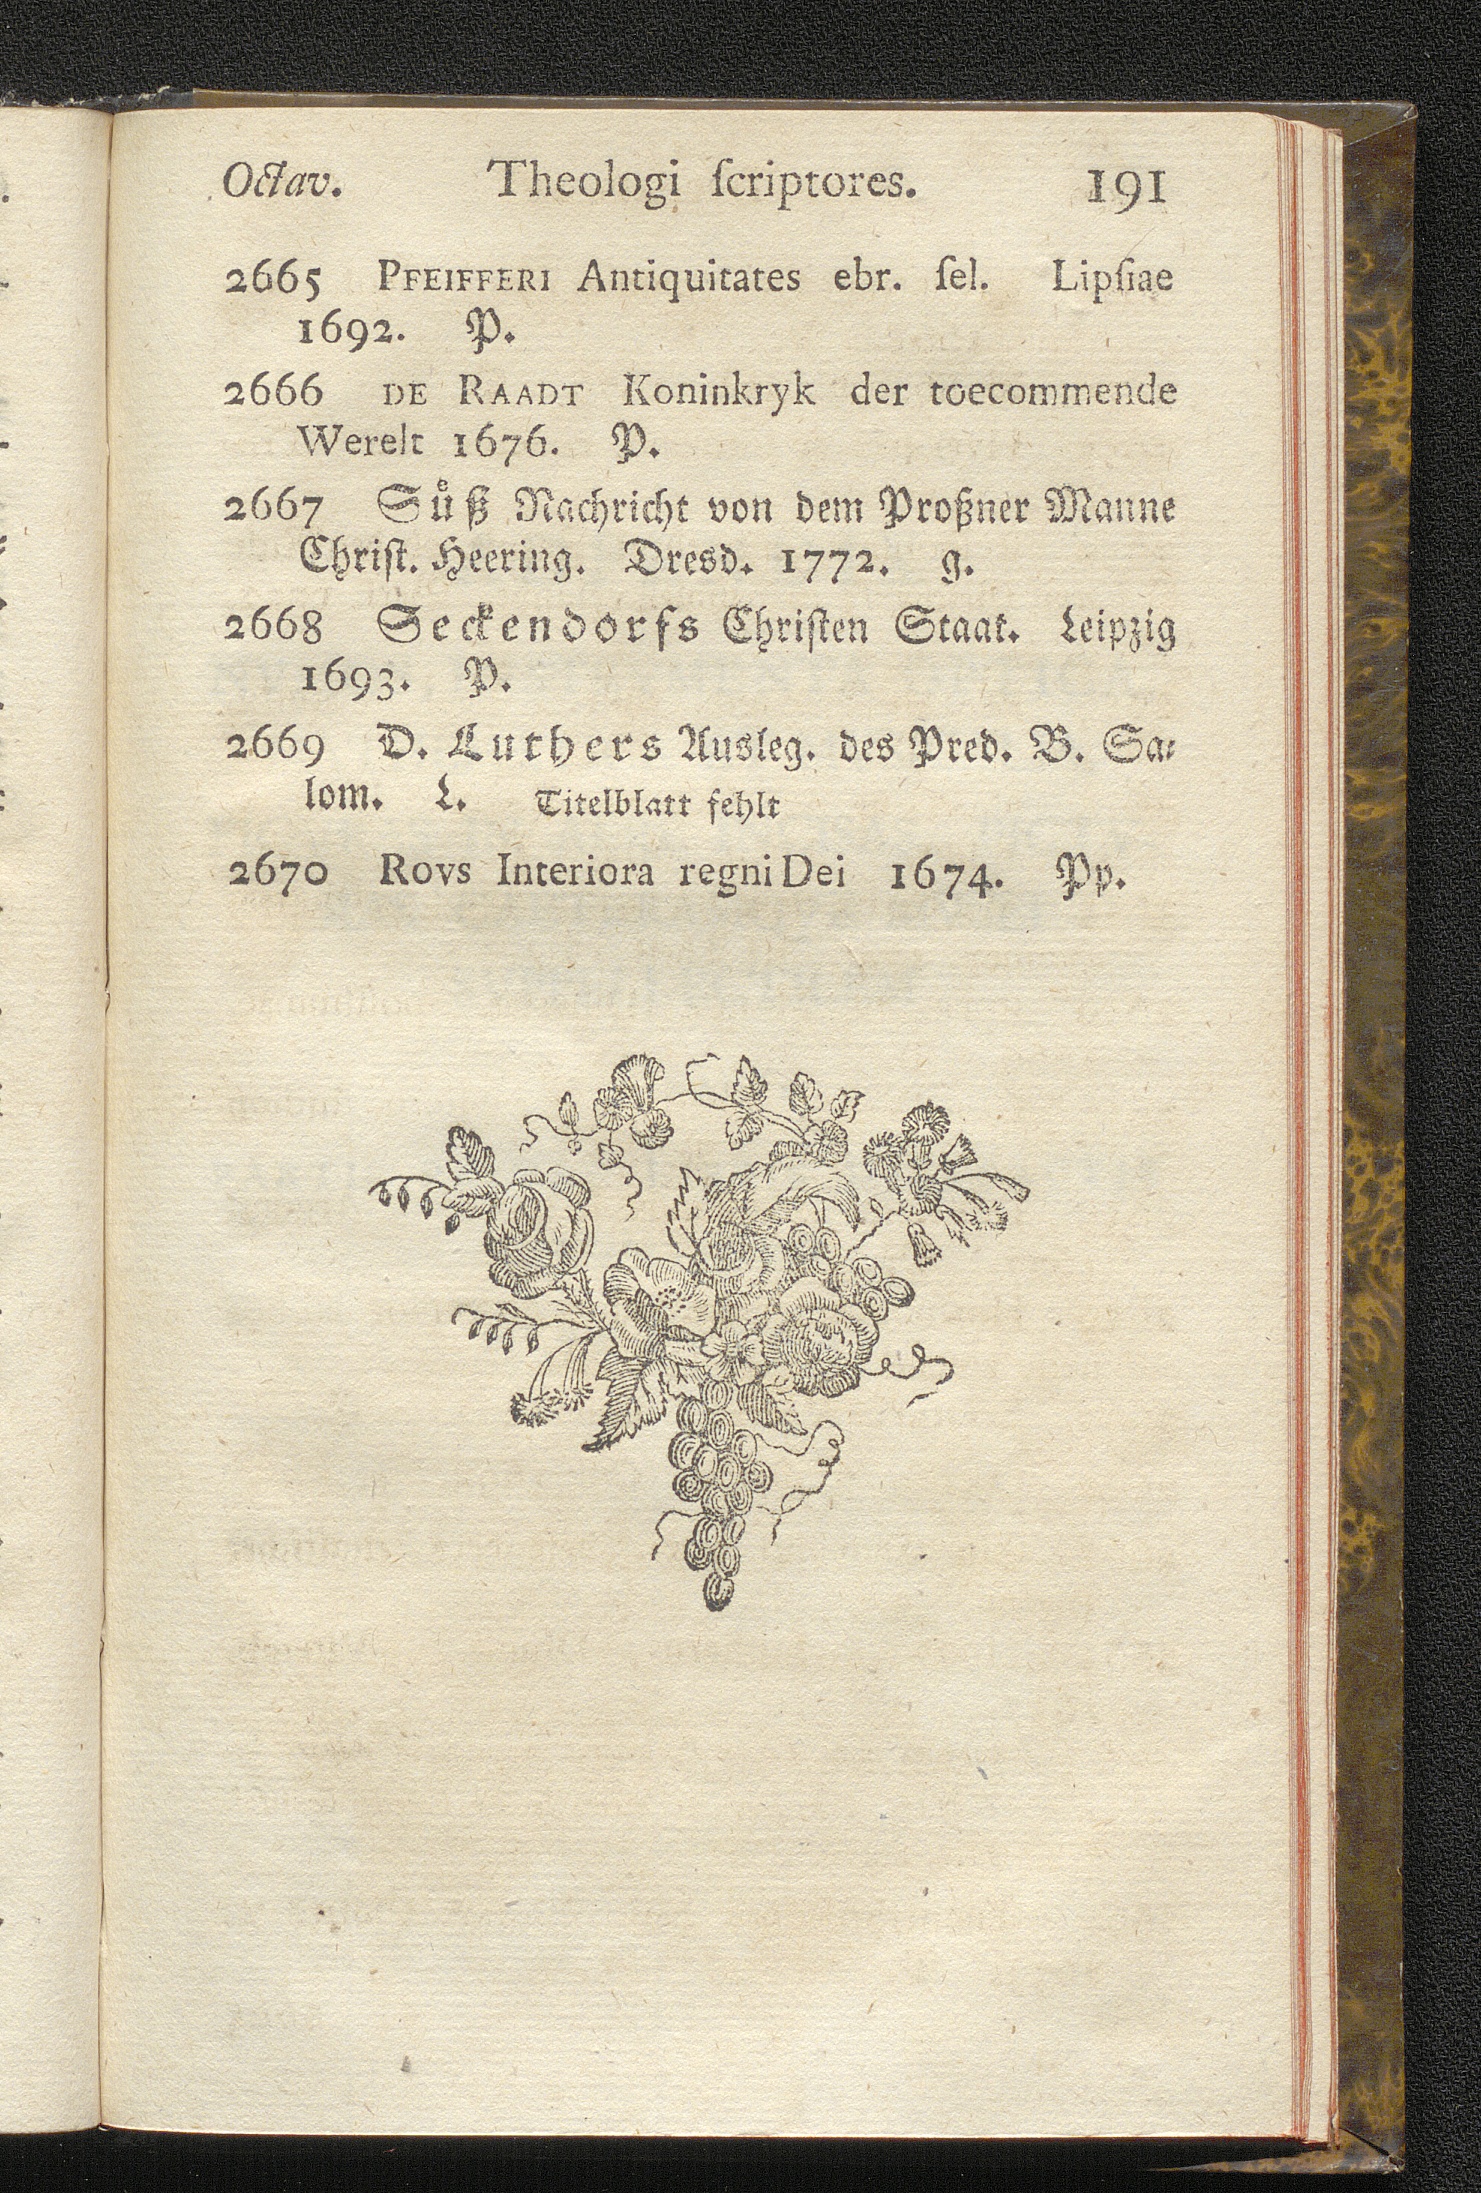 Octav. Theologi ſcriptores. 191
2665 PFEIFFERI Antiquitates ebr. ſel. Lipſiae
1692. P.
2666 DE RAADT Koninkryk der toecommende
Werelt 1676. P.
2667 Suͤß Nachricht von dem Proßner Manne
Chriſt. Heering. Dresd. 1772. g.
2668 Seckendorfs Chriſten Staat. Leipzig
1693. P.
2669 D. Luthers Ausleg. des Pred. B. Sa⸗
lom. L. Titelblatt fehlt
2670 ROVS Interiora regni Dei 1674. Pp.